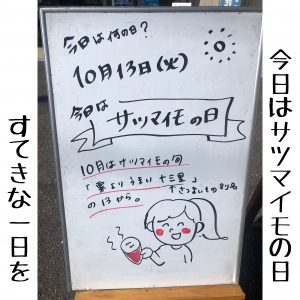 今日はサツマイモの日
今日は何の日?
10月13日(火)
今日は
サツマイモの日
10月はサツマイモの旬
「栗よりうまい十三里」
↑さつまいもの
の13から。
すてきな一日を